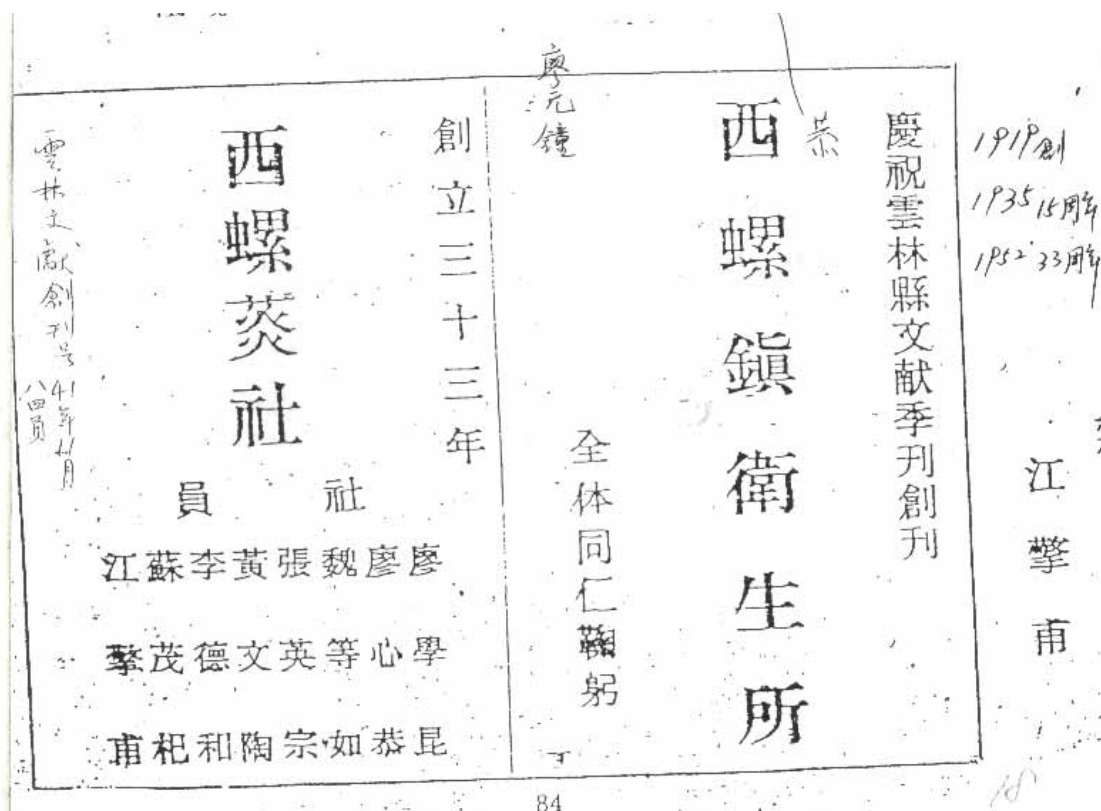 江擎甫
1919創
1935 15周年
1952 33周年
慶祝雲林縣文献季刊創刊
恭
西螺鎮衛生所
全体同仁鞠躬
廖元鐘
創立三十三年
西螺菼社
社員
廖學昆
廖心恭
魏等如
張英宗
黃文陶
李德和
蘇茂杞
江擎甫
雲林文獻創刊号
八四頁
84
18